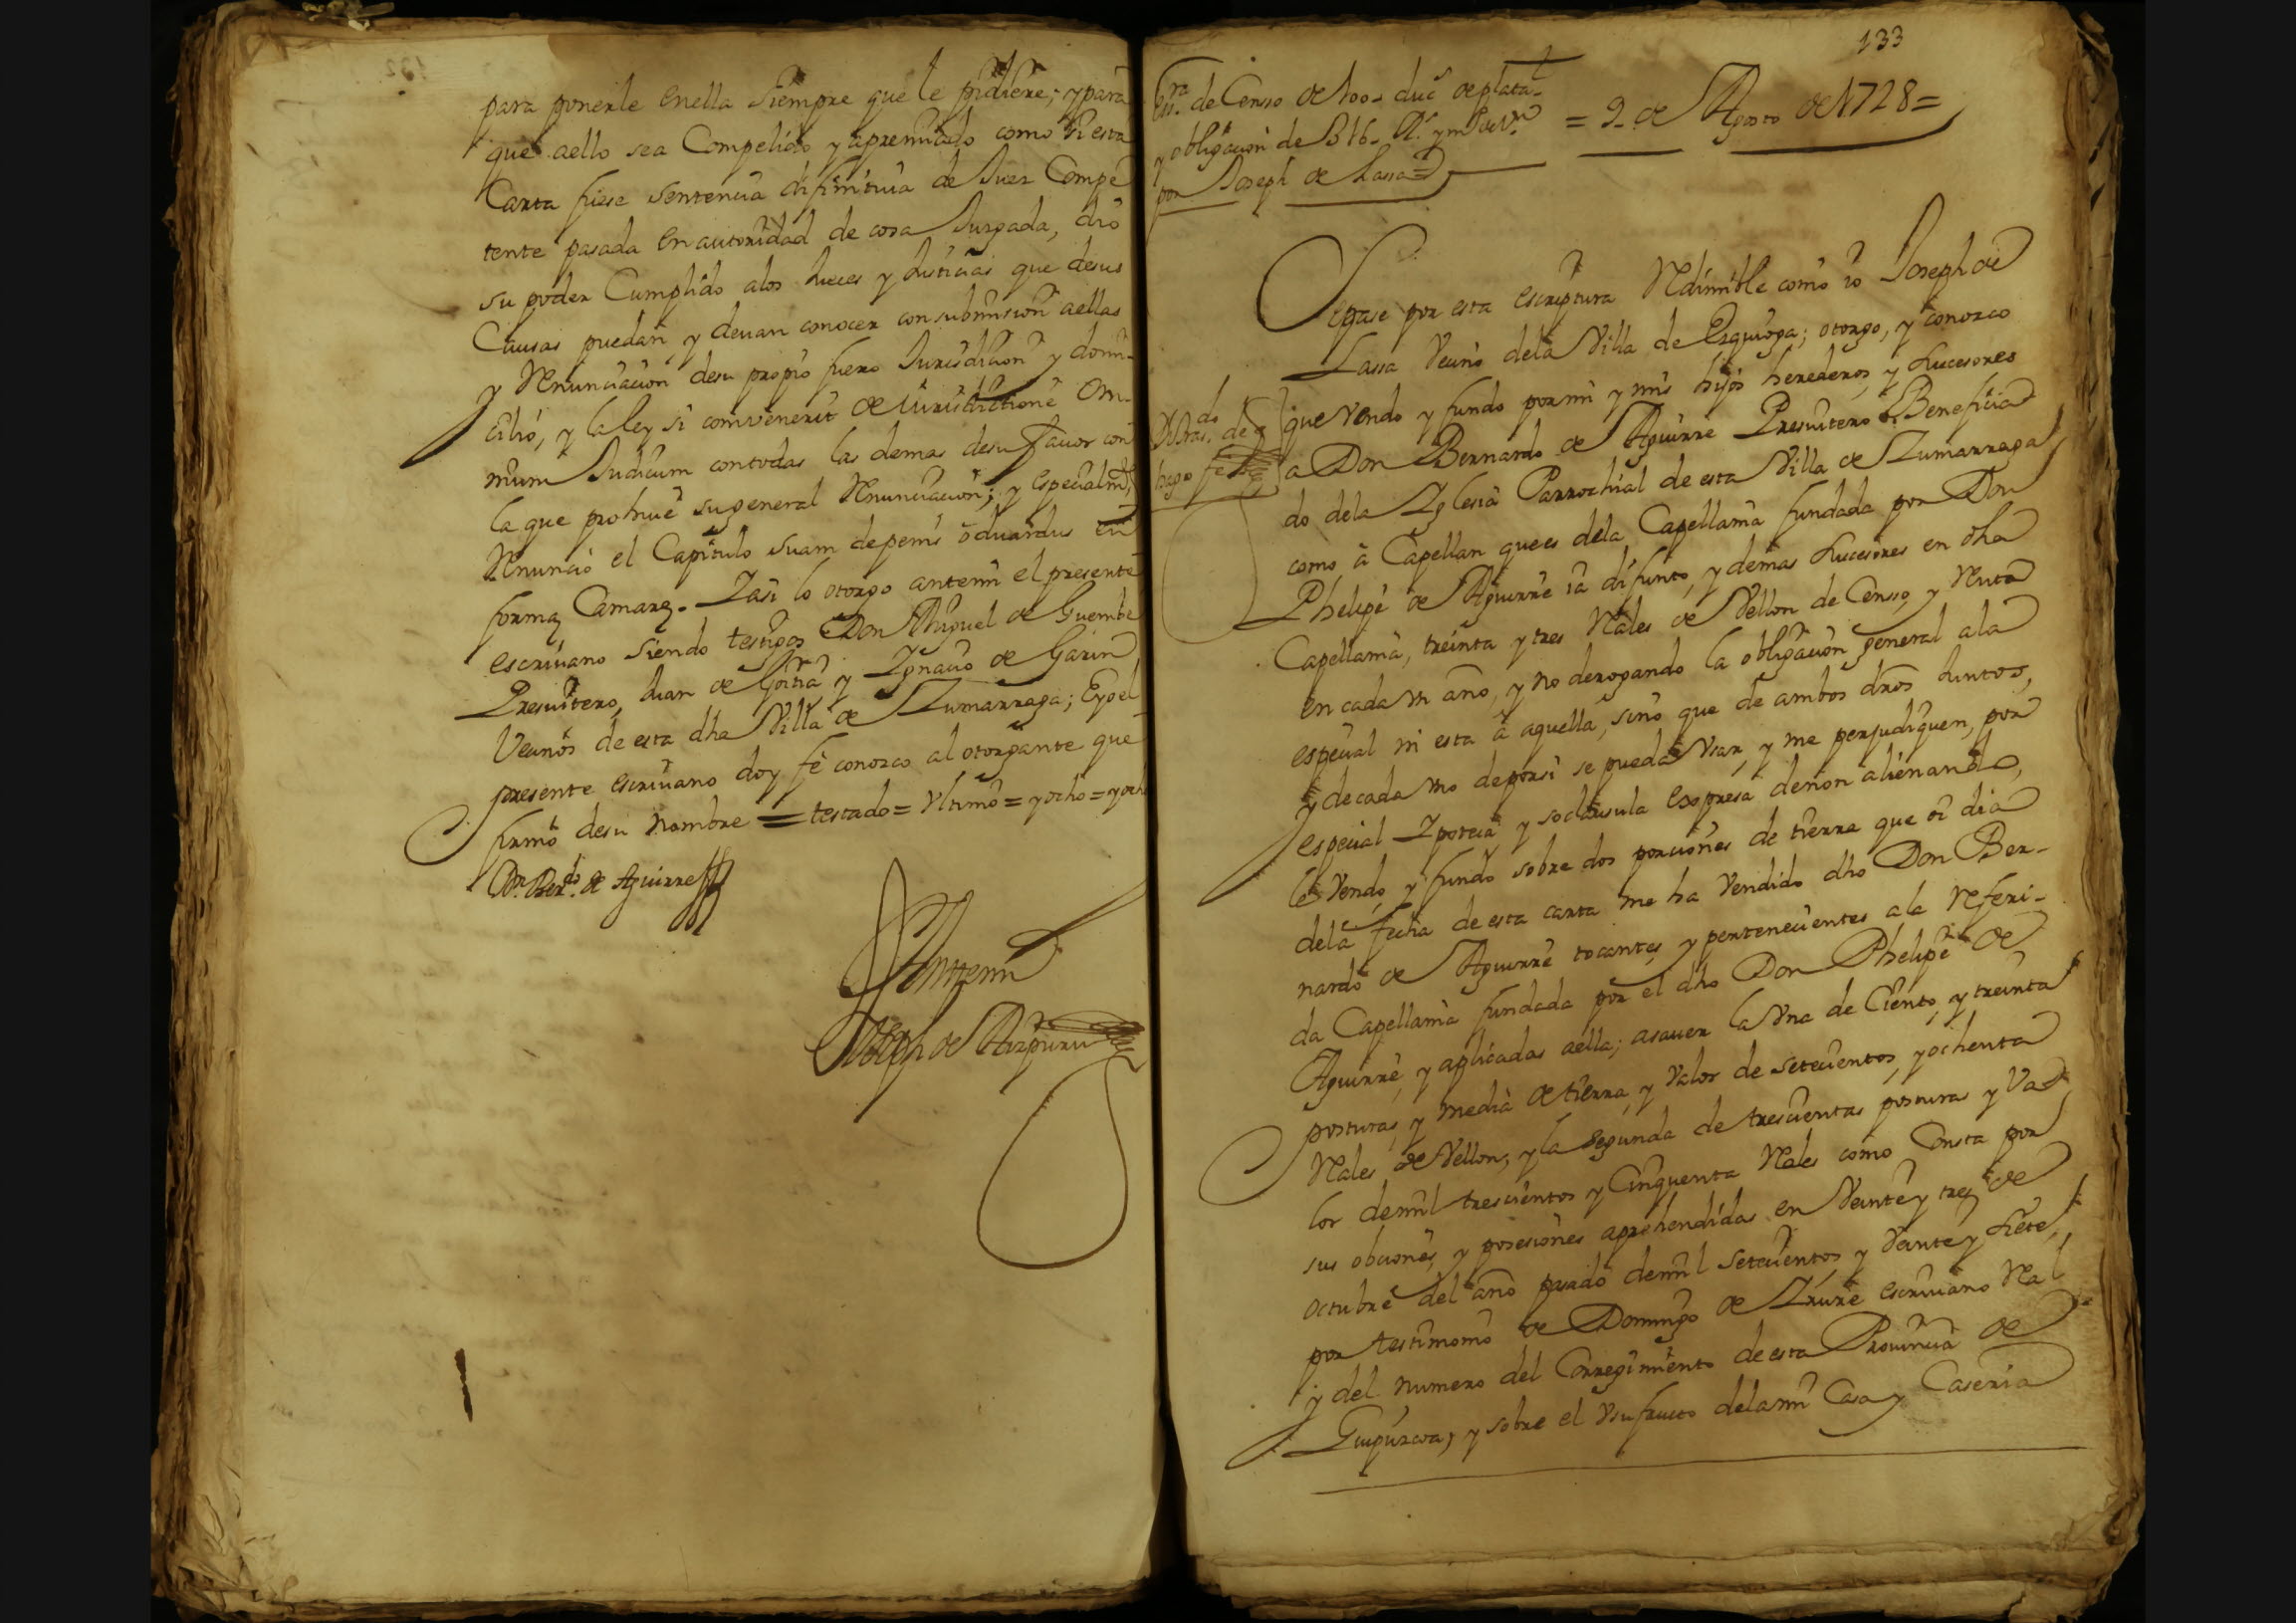 para ponerle enella siempre que le pidiere; y para
que aello sea Compelido y apremiado como si esta
Carta fuese sentencia difinitiua de Juez Compe
tente pasada en autoridad de cosa Juzgada, dio
su poder Cumplido alos Jueces y Justicias que desus
Causas puedan y deuan conocer con submision aellas
y Renunciacion desu propio fuero Jurisdicion y domi-
cilio, y la ley si convenerit de iurisdictione om-
nium Judicum contodas las demas desu fauor con
la que prohiue su general Renunciacion; y especialmte
Renunció el Capitulo suam de penis oduardus en
forma Camara. I asi lo otorgo antemi el presente
escriuano siendo testigos Don Miguel de Guembe
Presuitero, Juan de Goitia y Ignacio de Garin
Vecinos de esta dha Villa de Zumarraga; E yo el
presente escriuano doy fé conozco al otorgante que
firmó desu nombre = testado = Vltimo = y ocho = y ocho
Dn. Berdo. de Aguirre
Antemi
Joseph de Aizpuru
133
Essra de Censo de 100 - ducs de plata
y obligacion de 316 - Rs. y mo de Vn
por Joseph de Lassa
= 9 - de Agosto de 1728 =
Sepase por esta escriptura Redimible como io Joseph de
Lassa Vecino dela Villa de Ezquioga; otorgo, y conozco
que Vendo y fundo por mi y mis hijos herederos, y sucesores
a Don Bernardo de Aguirre Presuitero Beneficia
do dela Iglesia Parrochial de esta Villa de Zumarraga
como á Capellan que es dela Capellania fundada por Don
Phelipe de Aguirre ia difunto, y demas sucesores en dha
Capellania, treinta y tres Rales de Vellon de Censo, y Renta
en cada vn año, y no derogando la obligacion general ala
especial ni esta á aquella, sino que de ambos dros Juntos,
y de cada vno deporsi se pueda Vsar, y me perjudiquen, por
especial Ipoteca y so clausula expresa denon alienando,
le Vendo, y fundo sobre dos porciones de tierra que oi dia
dela fecha de esta carta me ha Vendido dho Don Ber-
nardo de Aguirre tocantes, y pertenecientes ala Referi-
da Capellania fundada por el dho Don Phelipe de
Aguirre, y aplicadas aella; asauer la Vna de Ciento, y treinta
posturas, y media de tierra, y Valor de setecientos, y ochenta
Rales de Vellon; y la segunda de trescientas posturas y Va-
lor de mil trescientos y Cinquenta Rales como Consta por
sus obciones, y posesiones aprehendidas en Veinte y tres de
octubre del año pasado de mil setecientos y Veinte y siete,
por testimonio de Domingo de Irure escriuano Ral
y del numero del Corregimiento de esta Prouincia de
Guipuzcoa, y sobre el Vsufructo dela mi Casa y Caseria
hago fe